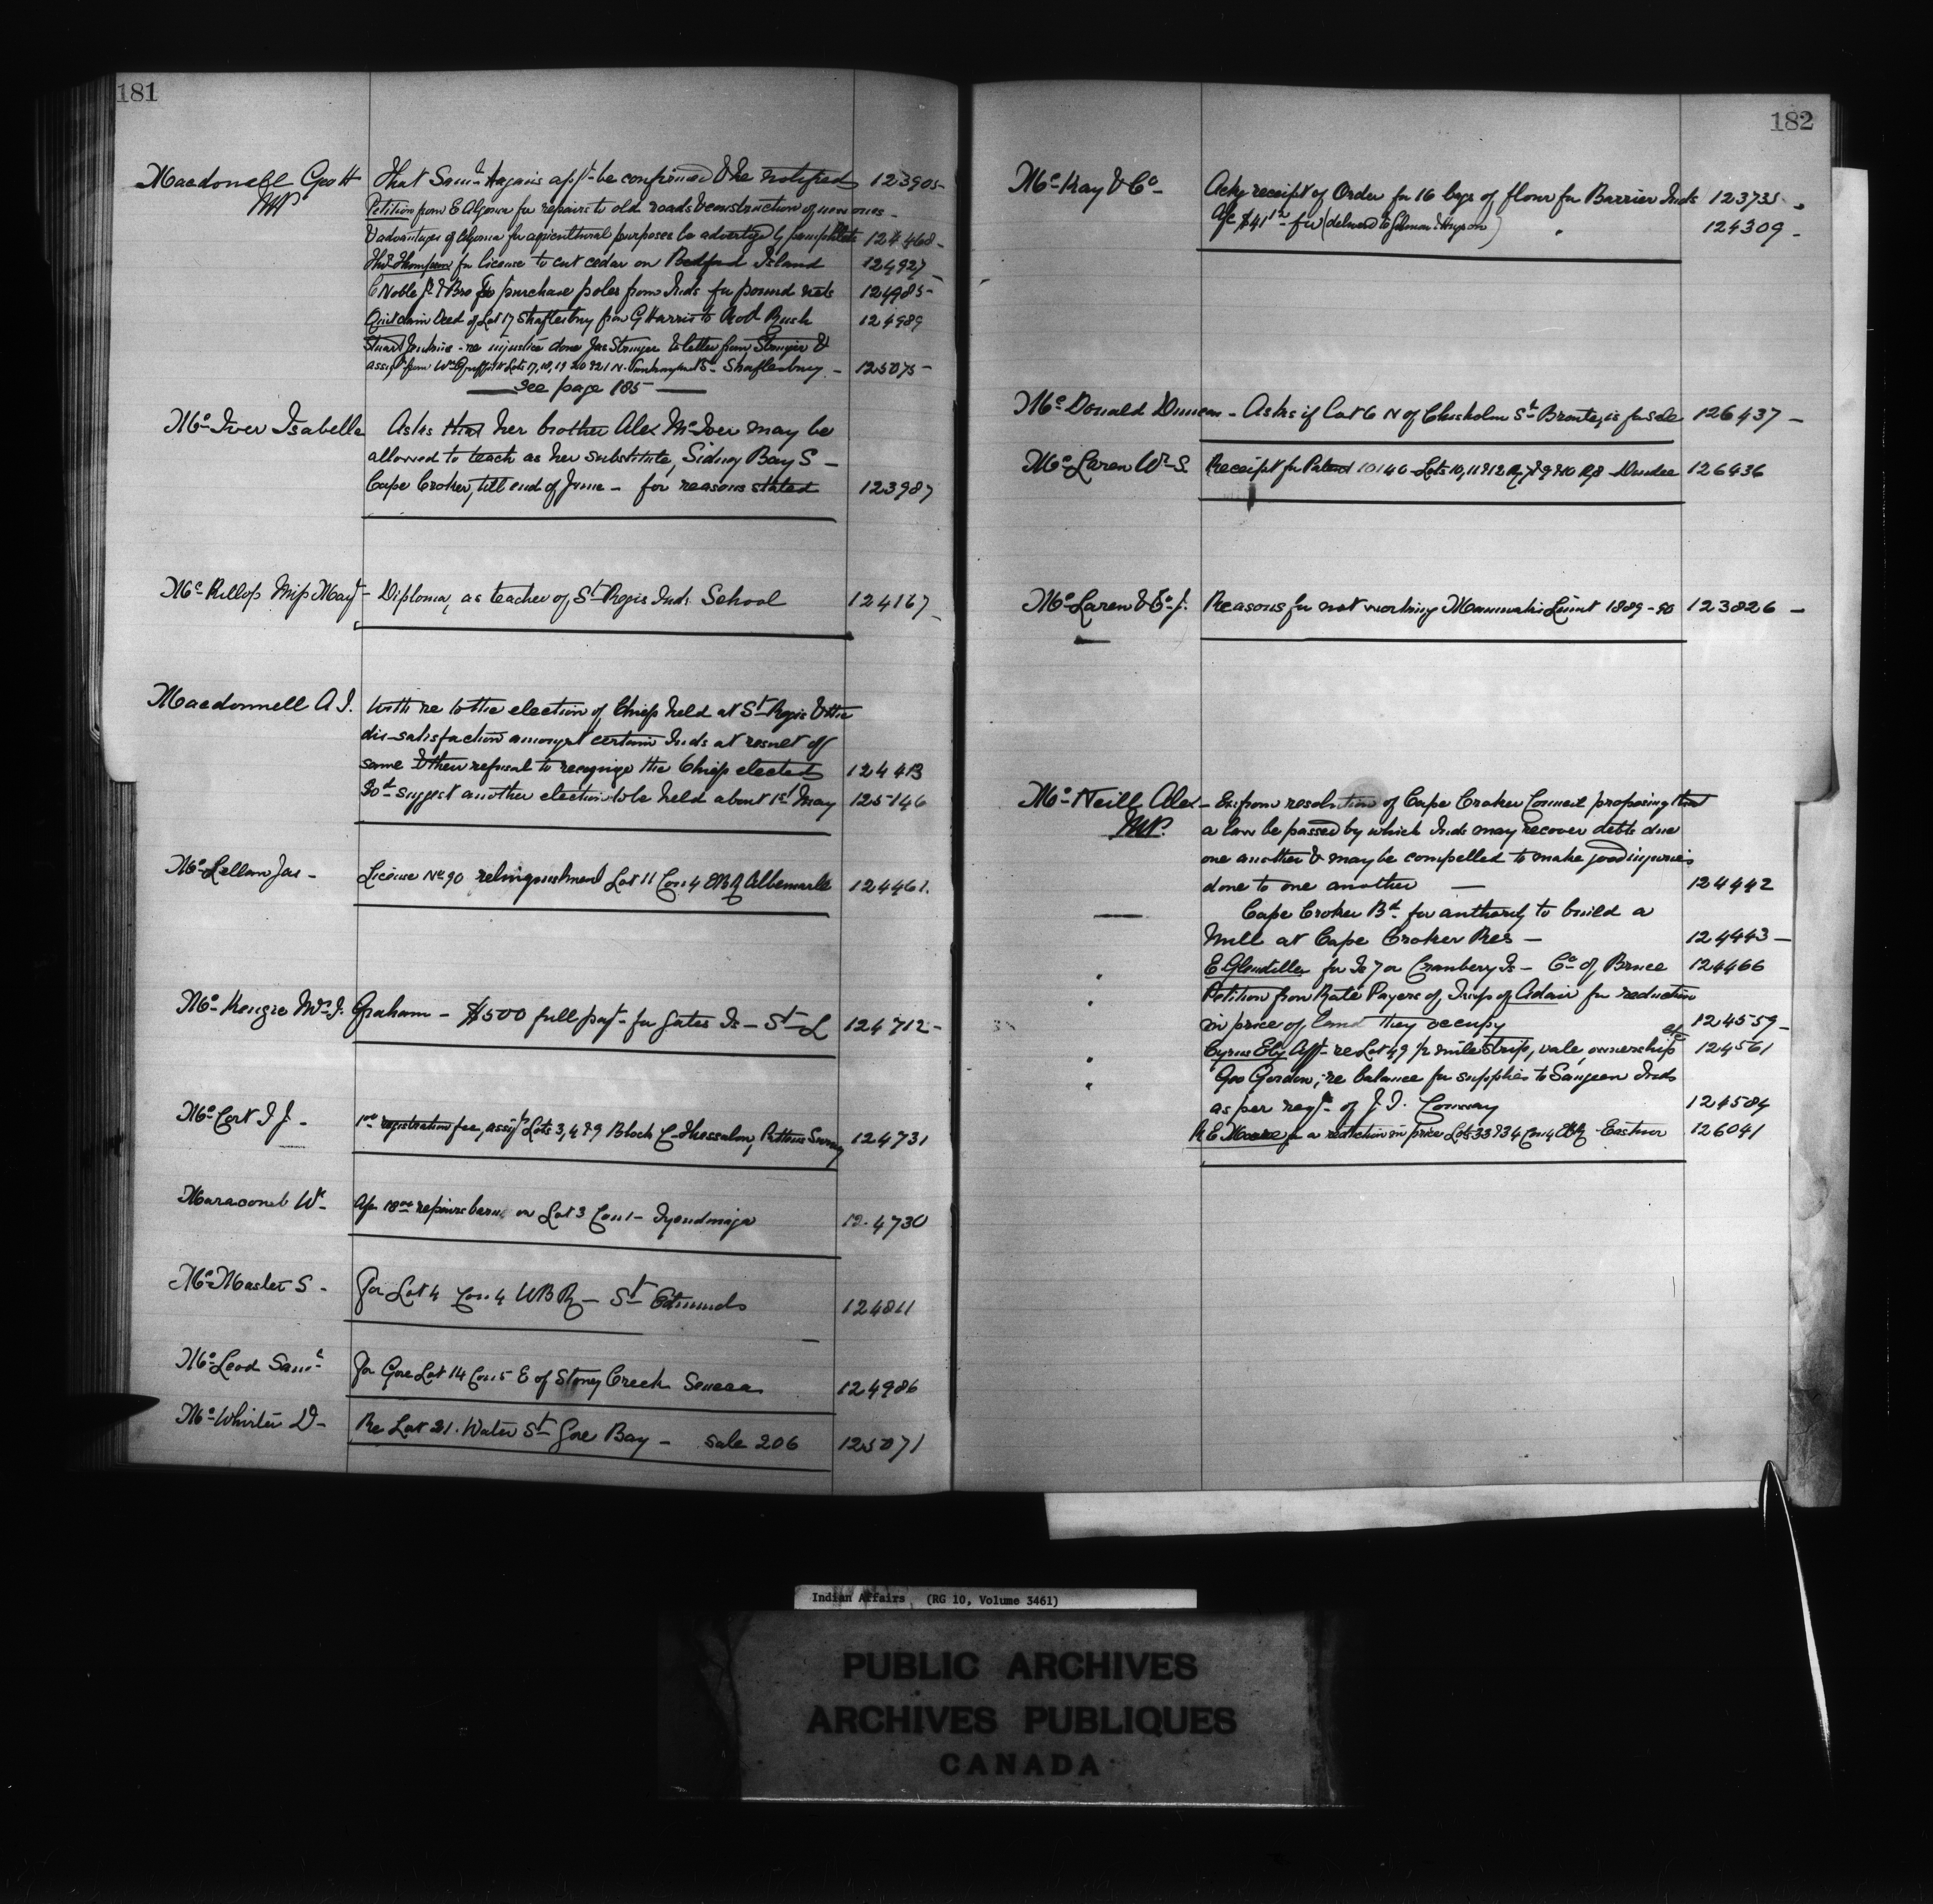 181
Macdonell Geo H That Saml Hagan's appt be confirmed & he notified 123905
MP Petition from E Algoma for repairs to old roads & construction of new ones -
& advantages of Algoma for agricultural purposes be advertised by pamphlets 124468 -
Thos Thompson for license to cut cedar on Bedford Island 124927 -
C Noble Jr & Bro to purchase poles from Inds for pound nets 124985 -
Quit claim Deed of Lot 17 Shaftesbury from G Harris to Bush 124989
Stuart Jenkins - re injustice done Jas Stringer & letter from Stringer &
assigt from Wm Lots 17, 18, 19 20 & 21 N. St - Shaftesbury - 125075 -
See page 185
Mc Iver Isabella Asks that her brother Alex McIver may be
allowed to teach as her substitute, Sidney Bay S -
Cape Croker, till end of June - for reasons stated 123987
Mc Killop Miss Mary - Diploma, as teacher of St Regis Ind. School 124167 -
Macdonnell A I. With re to the election of Chiefs held at St Regis & the
dis-satisfaction amongst certain Inds at result of
same & their refusal to recognize the Chiefs elected 124413
Do - suggest another election to be held about 1st May 125146
Mc Lellan Jas - License No 90 relinquishment Lot 11 Con 4 EBR Albemarle 124461.
Mc Kenzie Mrs I. Graham - $500 full payt - for Gates Is - St L 124712 -
Mc Cort I J - 1.00 registration fee, assigt Lots 3, 4 & 9 Block C - Thessalon, Pattens Survey 124731
Maracomb Wm - 18.00 repairs barn on Lot 3 Con 1 - Tyendinaga 124730
Mc Master S - For Lot 4 Con 4 WBR - St Edmunds 124811
Mc Leod Saml For Gore Lot 14 Con 5 E of Stoney Creek Seneca 124986
Mc Whirter D - Re Lot 21. Water St Gore Bay - sale 206 125071
182
Mc Kay & Co - Ackg receipt of Order for 16 bags of flour for Barrier Inds 123735 -
A/c $41 - for (delivered to ) " 124309 -
Mc Donald Duncan - Asks if Lot 6 N of Chisholm St Bronte, is for sale 126437 -
Mc Laren Wm S. Receipt for Patent 10140 - Lots 10, 11 & 12 R 7 & 9 & 10 R 8 - Dundee 126436
Mc Laren & Co J. Reasons for not working Limit 1889-90 123826 -
Mc Neill Alex - resolution of Cape Croker Council proposing that
MP. a law be passed by which Inds may recover debts due
one another & may be compelled to make good injuries
done to one another - 124442
— Cape Croker Bd for authority to build a
Mill at Cape Croker Res - 124443 -
" E for Is 7 or Cranberry Is - Co of Bruce 124466
" Petition from Rate Payers of Twsp of Adair for reduction
in price of land they occupy 124559 -
" Cyrus Eby Aff - re Lot 49 1/2 mile strip, vale, ownership etc 124561
" Geo Gordon, re balance for supplies to Saugeen Inds
as per reqn of J. I. Conway 124584
R E Moore for a reduction in price Lots 33 & 34 Con 4 EBR - Eastnor 126041
Indian Affairs (RG 10, Volume 3461)
PUBLIC ARCHIVES
ARCHIVES PUBLIQUES
CANADA